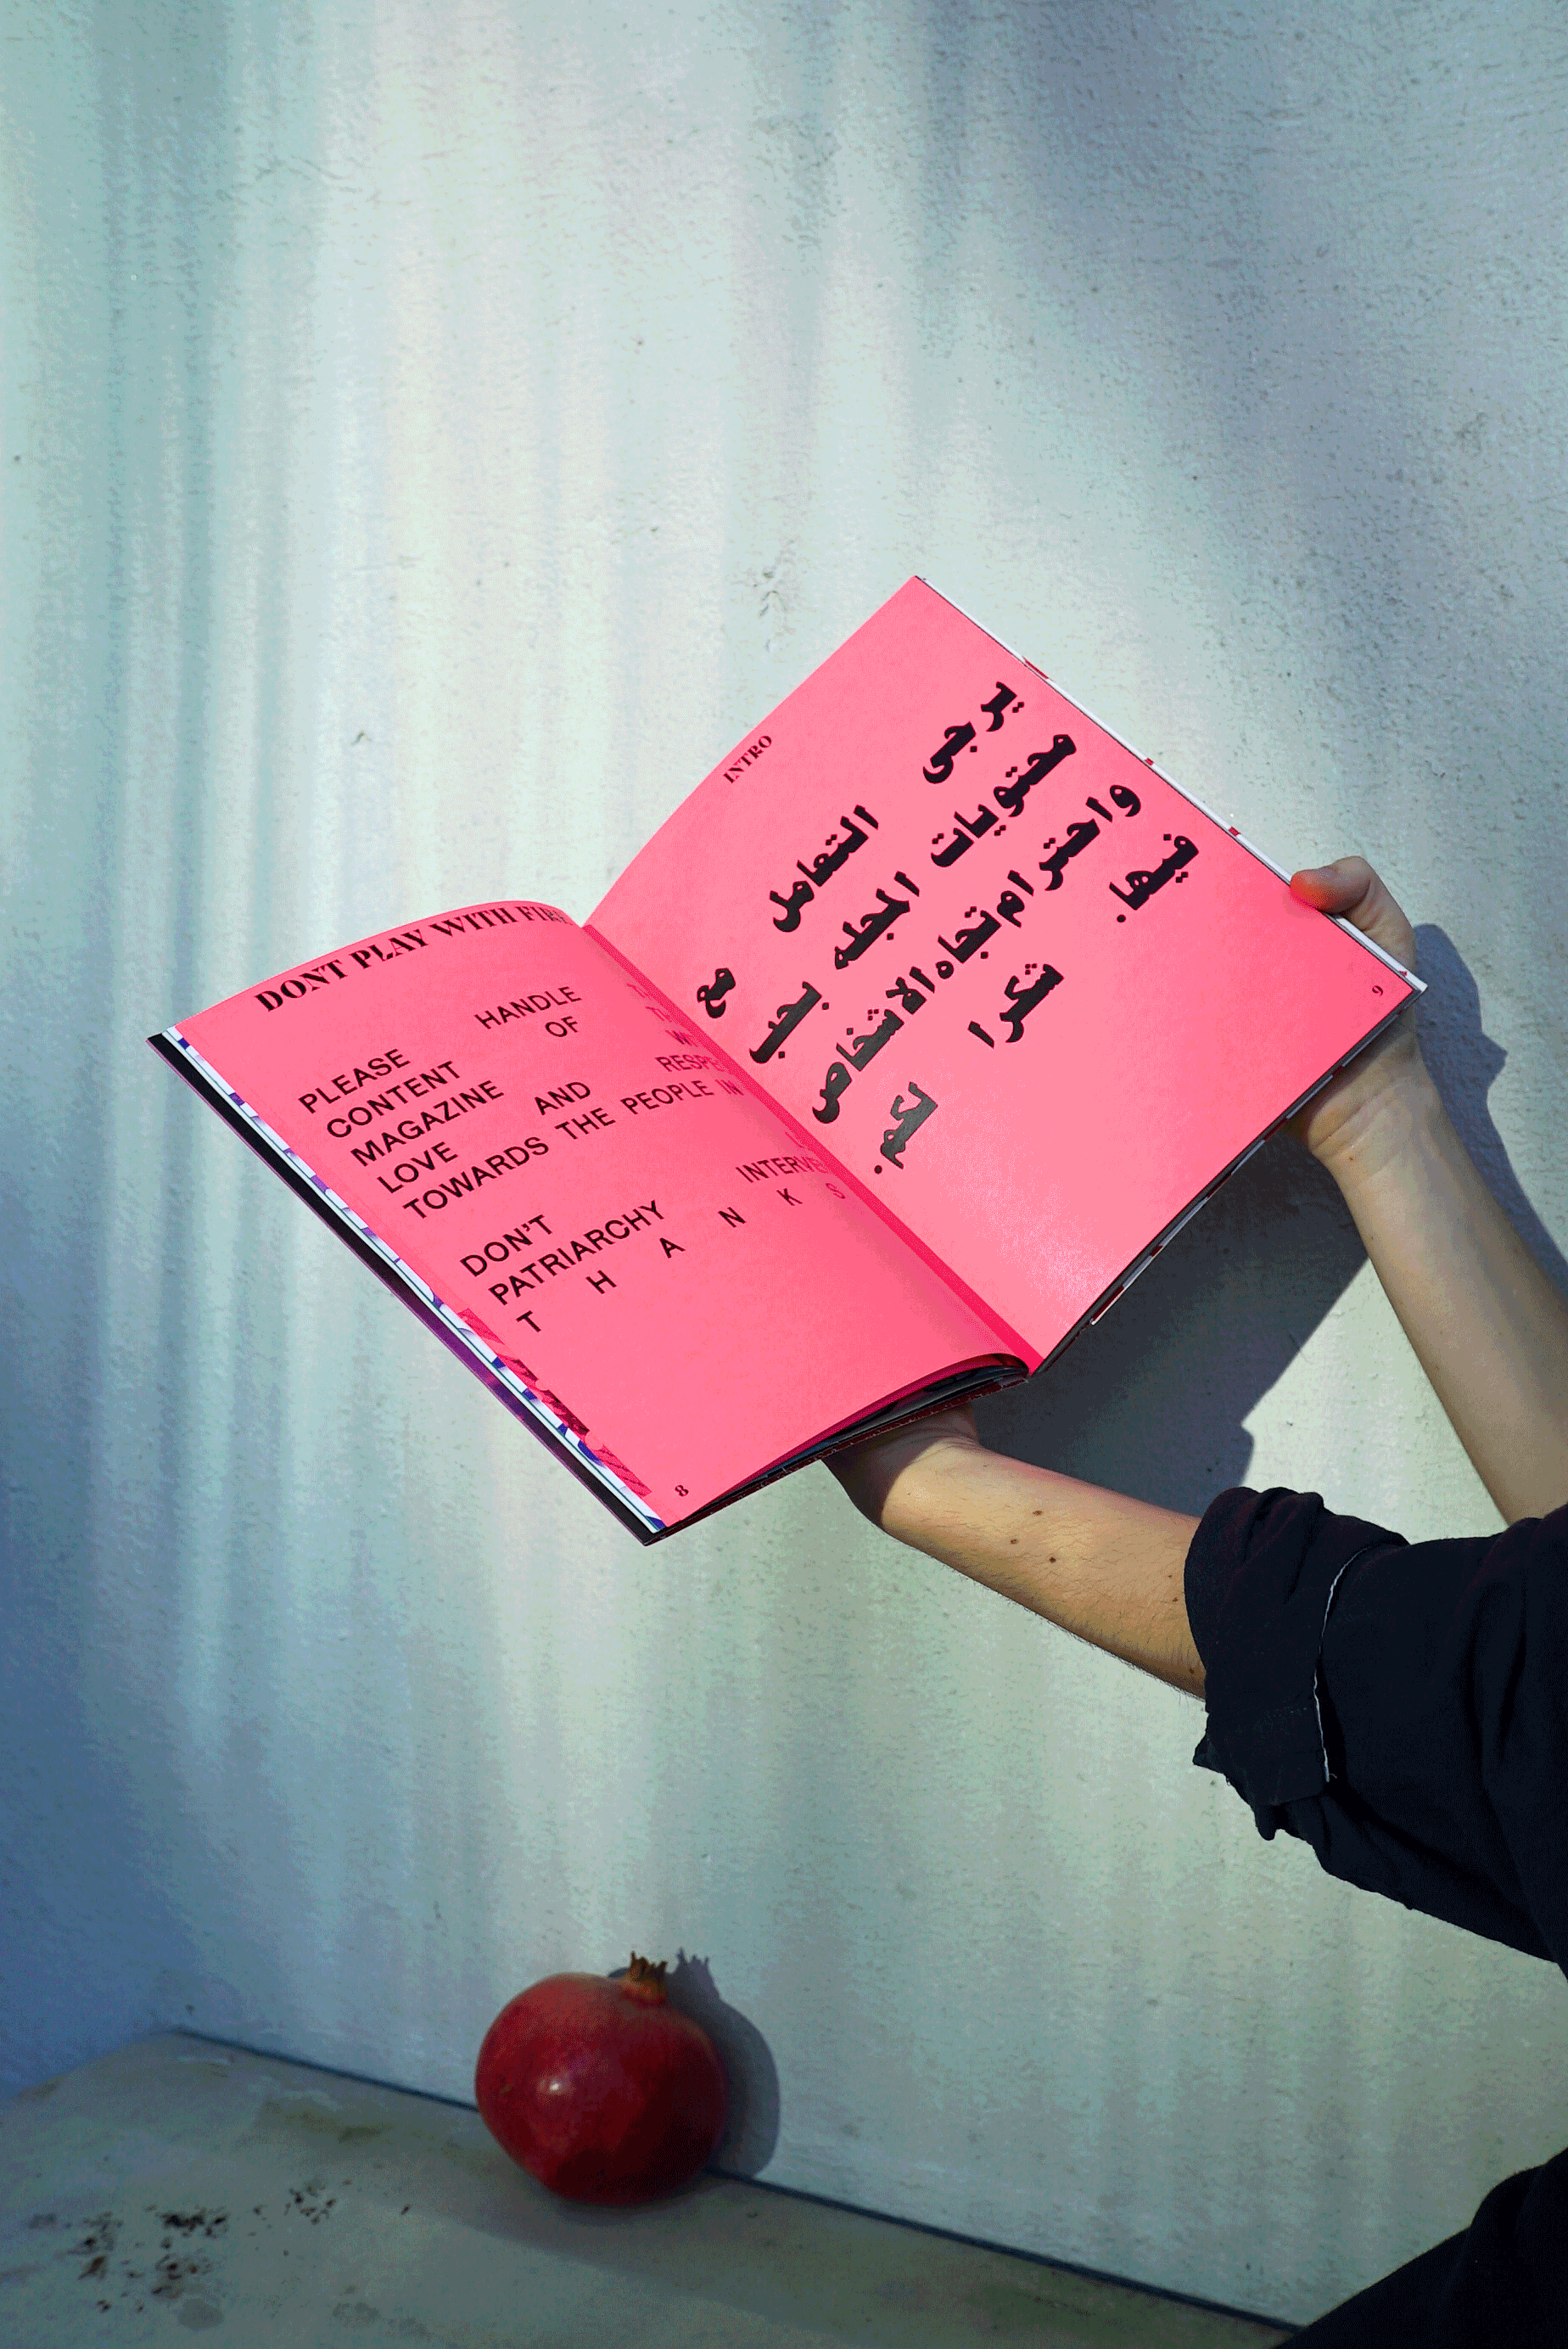 DONT PLAY WITH FIRE
PLEASE HANDLE
CONTENT OF
MAGAZINE
LOVE AND
TOWARDS THE PEOPLE IN
DON'T
PATRIARCHY
T H A N K S
8
INTRO
يرجى التعامل مع
محتويات المجله بحب
واحترام تجاه الاشخاص
فيها.
شكرا لكم.
9